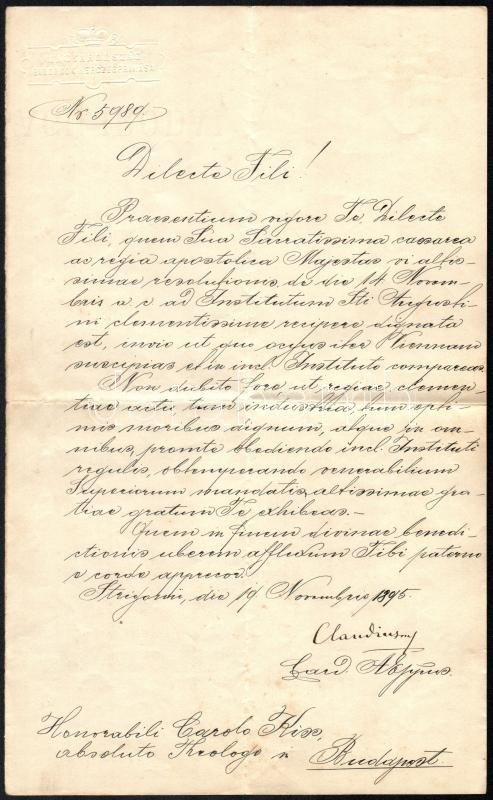 Nr 5989.
Dilecte Fili!
Praesentium vigore Te Dilecte
Fili, quem Sua Sacratissima caesarea
ac regia apostolica Majestas vi altis-
simae resolutionis de die 14 Novem-
bris a c ad Institutum Sti Augusti-
ni clementissime recipere dignata
est, invio ut quo ocyus iter Viennam
suscipias et in incl. Instituto compareas.
Non dubito fore ut regiae clemen-
tiae actu, tum industria, tum opti-
mis moribus dignum, atque in om-
nibus, promte obediendo incl. Instituti
regulis, obtemperando venerabilium
Superiorum mandatis, altissimae gra-
tiae gratum Te exhibeas.-
Quem in finem divinae benedi-
ctionis uberem affluxum Tibi paterno
e corde apprecor.
Strigonii, die 19 Novembris, 1895.
Claudius
Card. AEppus.
Honorabili Carolo Kiss,
absoluto Theologo in
Budapest.